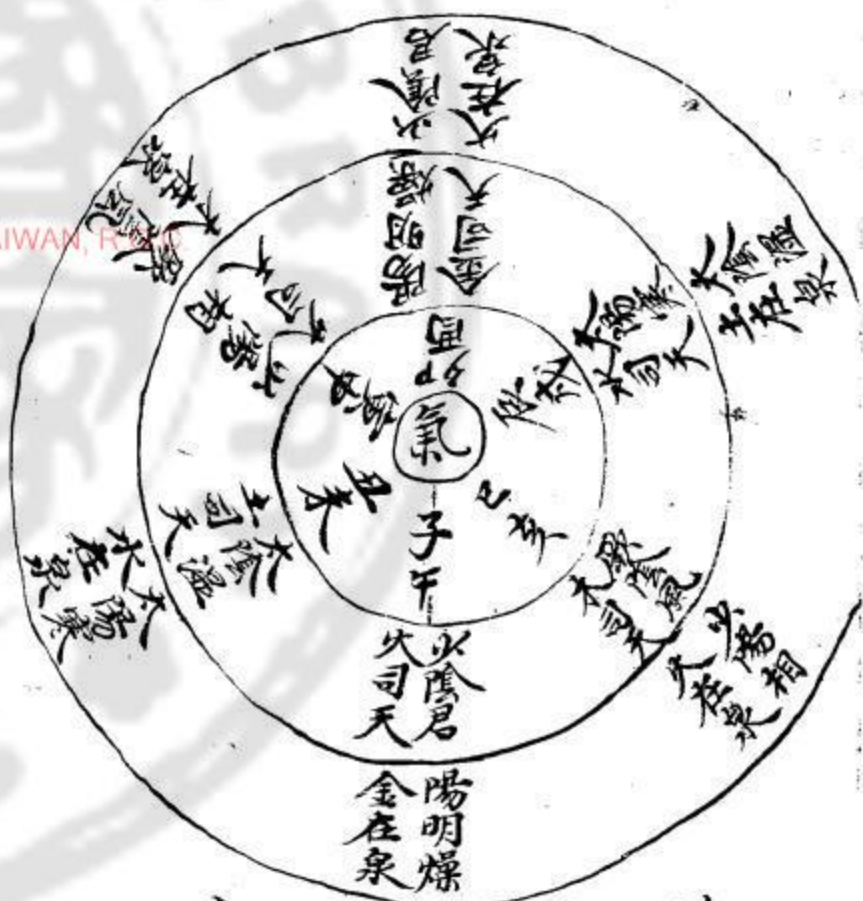 氣
子午
丑未
寅申
卯酉
辰戌
巳亥
少陰君
火司天
太陰濕
土司天
少陽相
火司天
陽明燥
金司天
太陽寒
水司天
厥陰風
木司天
陽明燥
金在泉
太陽寒
水在泉
厥陰風
木在泉
少陰君
火在泉
太陰濕
土在泉
少陽相
火在泉
AIWAN, R.O.C.